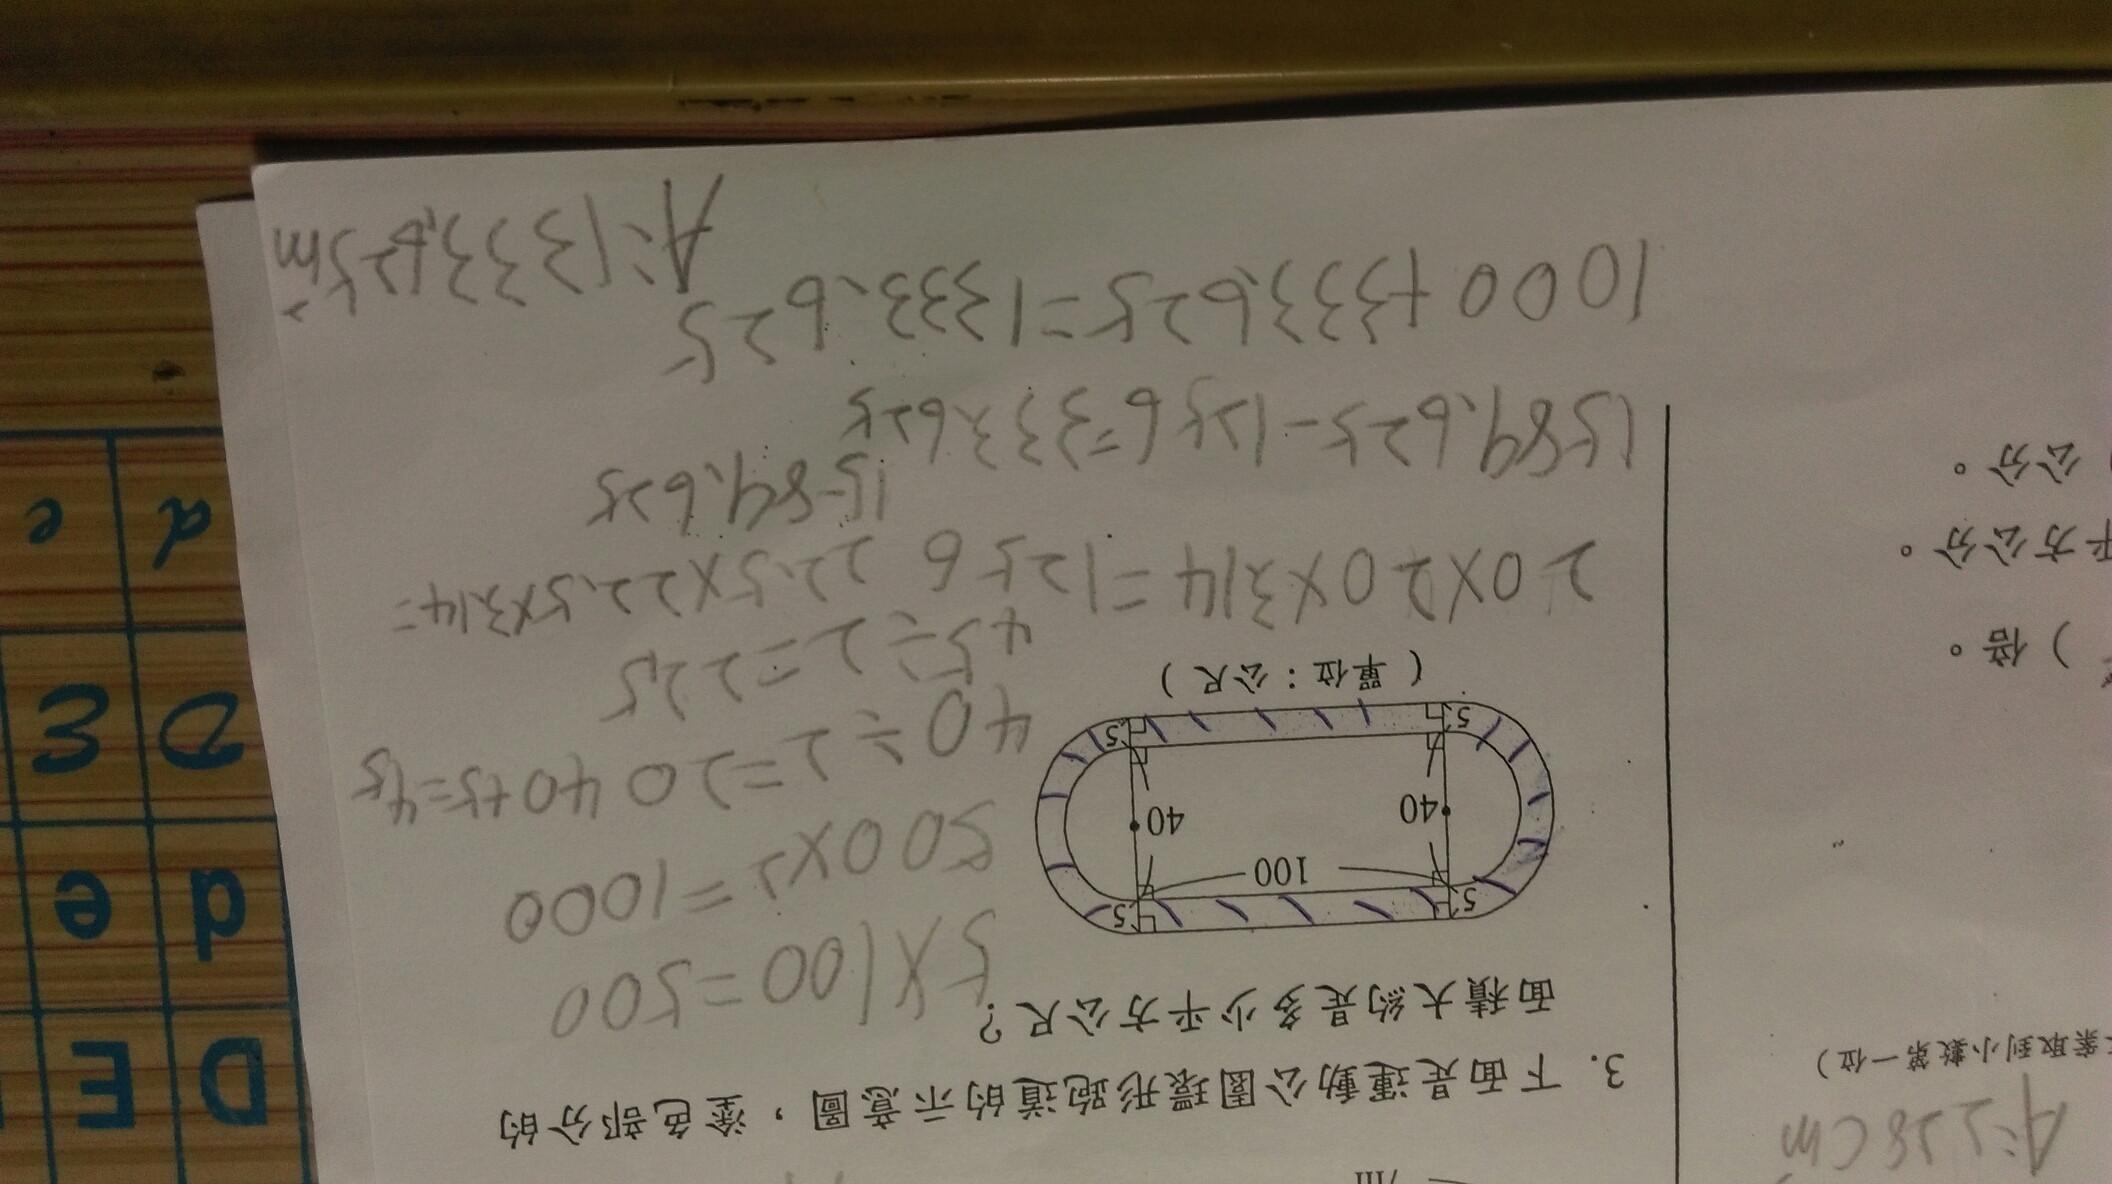 3. 下面是運動公園環形跑道的示意圖，塗色部分的
面積大約是多少平方公尺？
5X100=500
500X2=1000
40÷2=20 40+5=45
45÷2=22.5
20X20X3.14=1256 22.5X22.5X3.14=
1589.625
1589.625-1256=333.625
1000+333.625=1333.625
A:1333.625m²
5 5
100
40 40
5 5
（單位：公尺）
A:2.28cm²
案取到小數第一位）
）倍。
平方公分。
）公分。
D E
d e
D E
d e